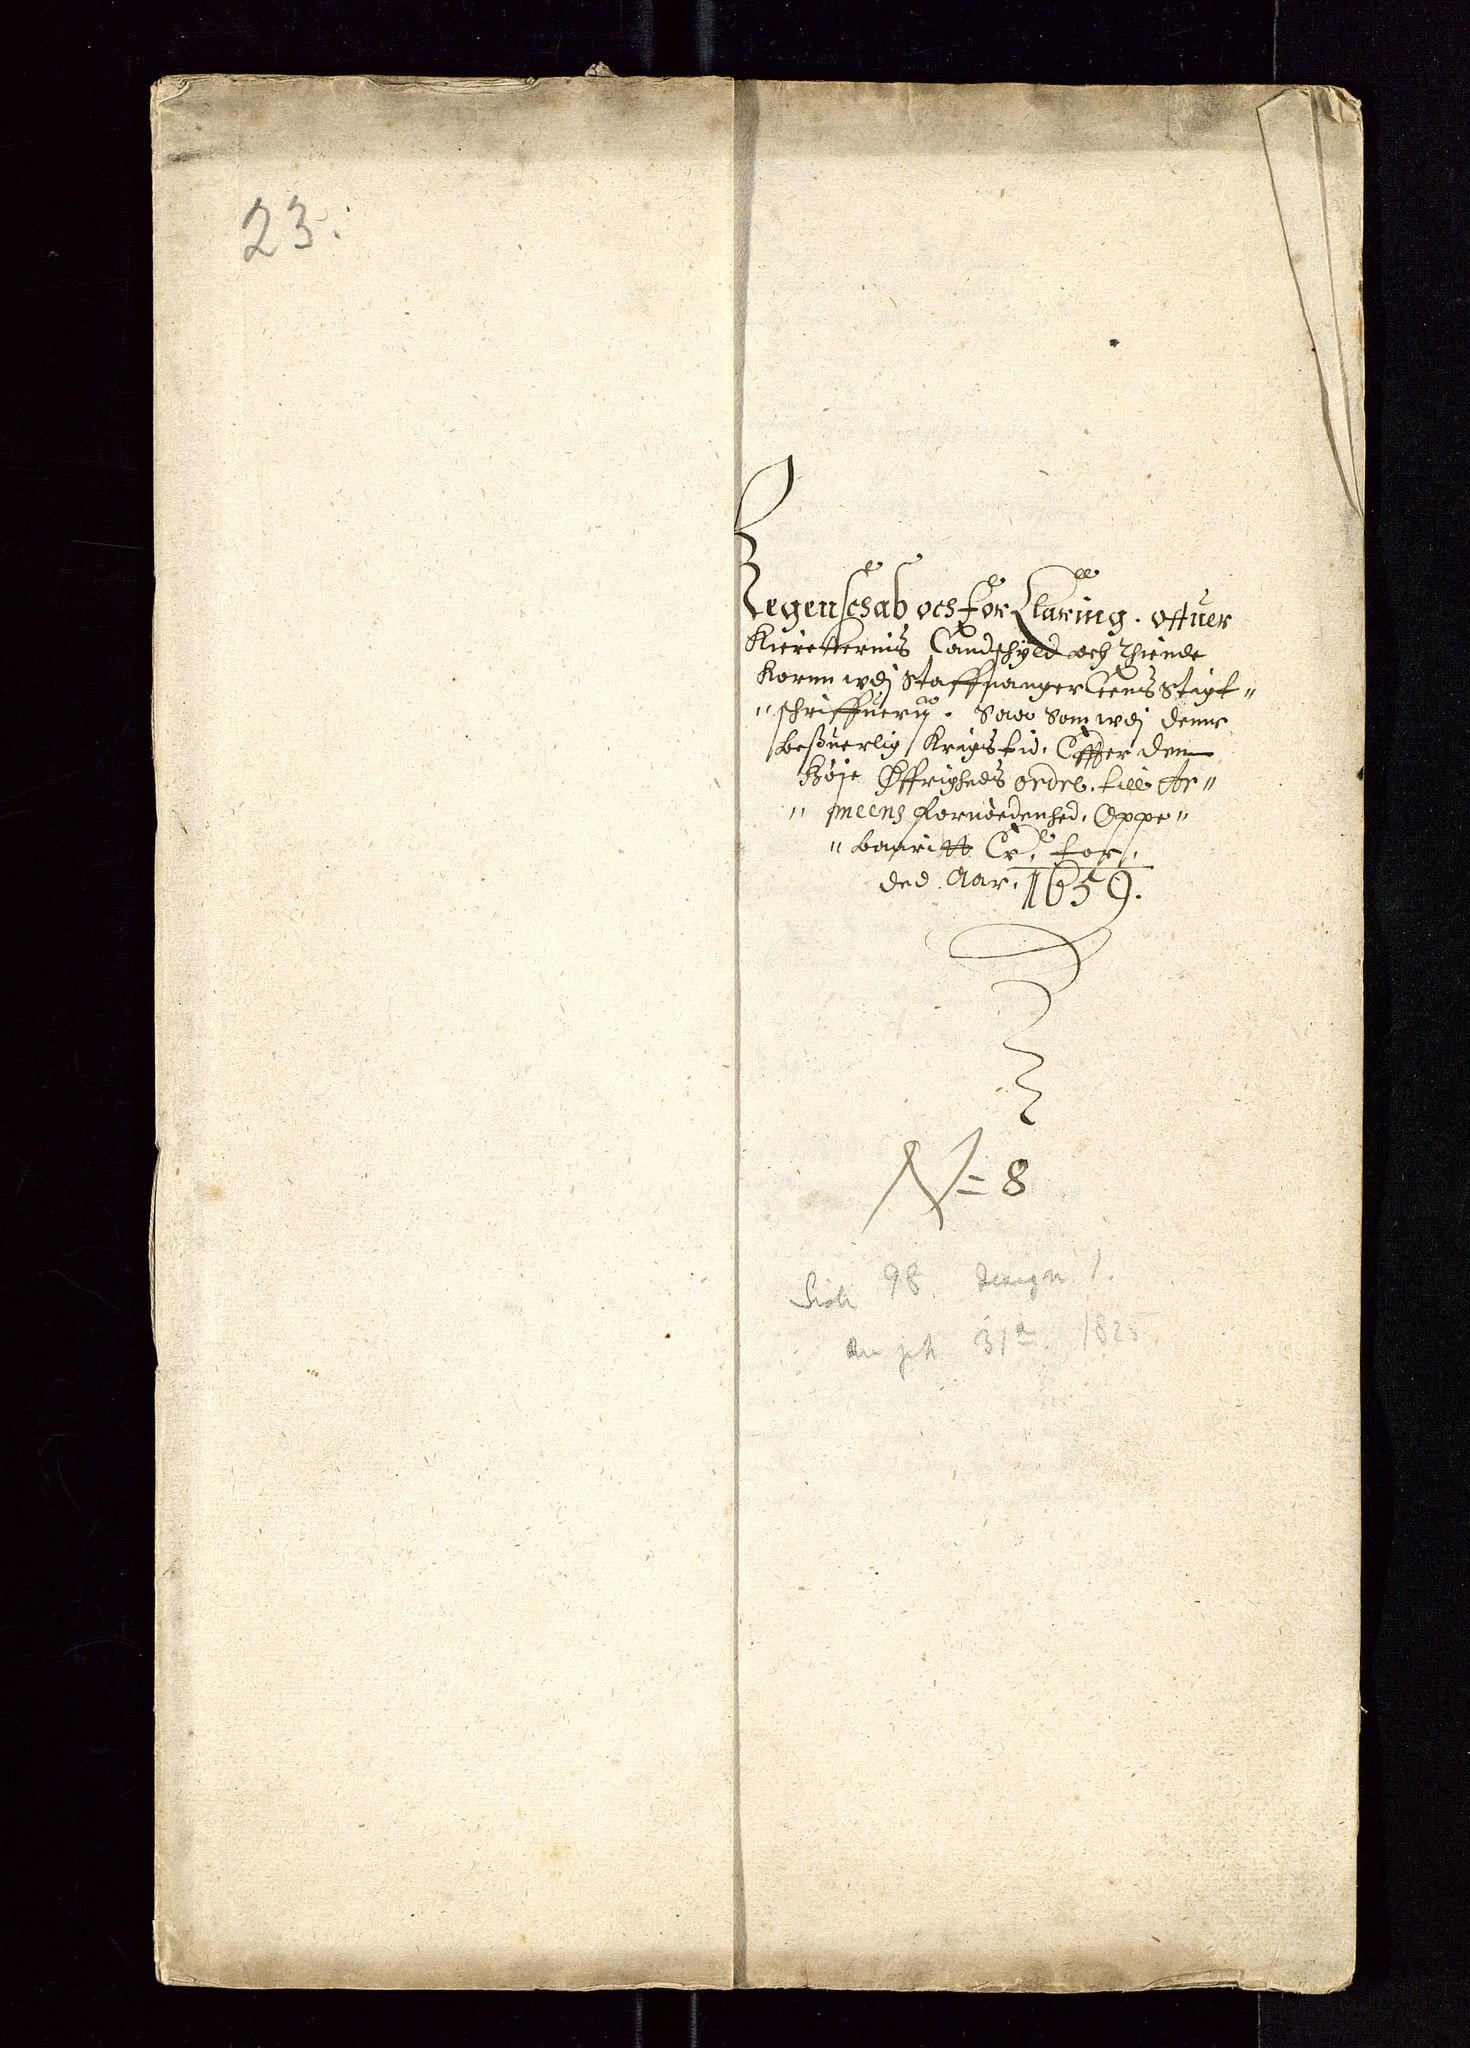 23.
Regenschab och forklaring. offuer
Kierckernis Landschyld och Thiende
Korn wdj Staffuanger Leens Stigt "
" schriffuerij. Saa som wdj denne
besuerlig Krigs tid, Effter den
höje Öffrigheds ordre. till Ar "
" meens fornödenhed, Oppe "
" baaritt Er, for
ded Aar. 1659.
N = 8
98 1.
31 1825